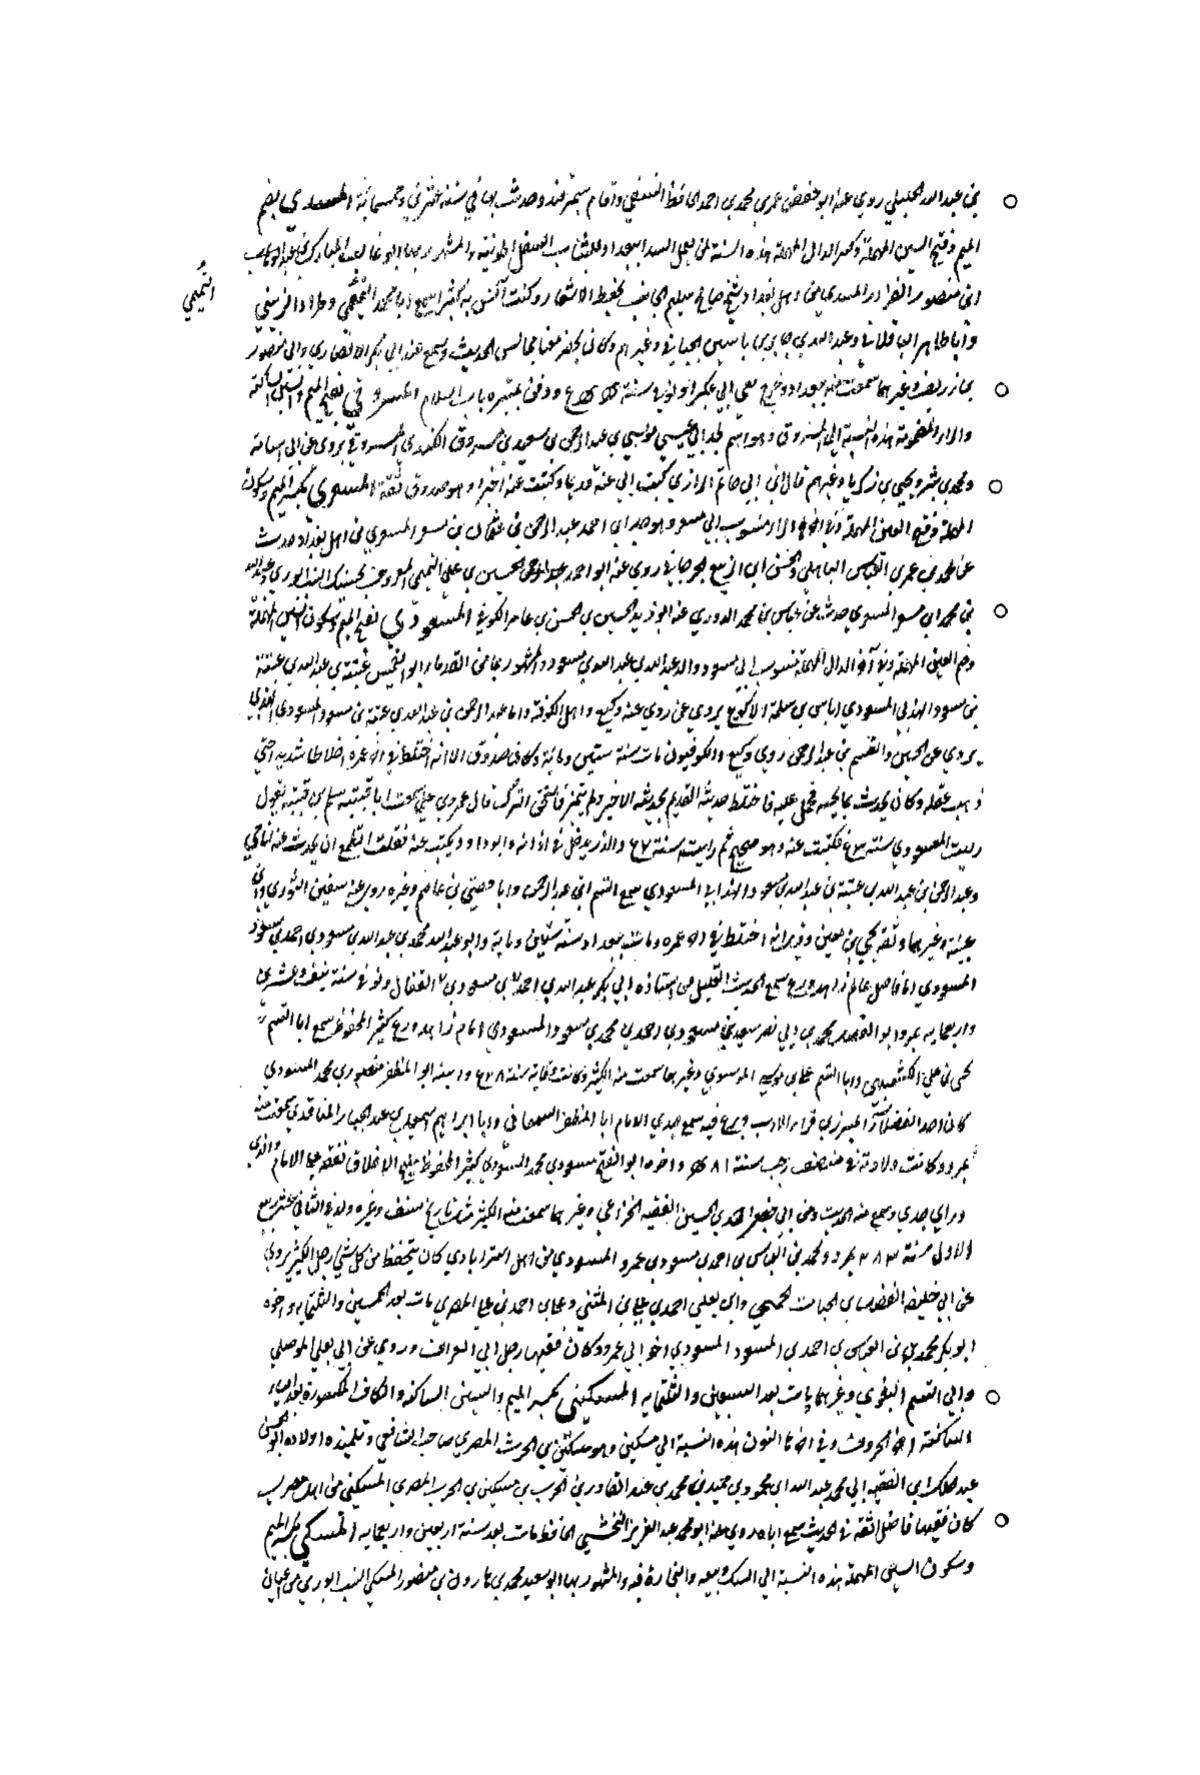 بن عبد الله الجليلي روي عنه ابو حفص عمر بن محمد بن احمد الحافظ النسفي واقام بسمرقند وحدث بها في سنة عشرين وخمسمائة المسدي بضم
الميم وفتح السين المهملة وكسر الدال المهملة هذه النسبة لمن يعمل السدا ببغداد والمشهور بها ابو غالب المبارك بن عبد الوهاب
التميمي
ابن منصور القزاز المسدي من اهل بغداد شيخ صالح سليم الجانب يحفظ الاشعار وكنت آنس به كثيرا سمع ابا محمد التميمي وطراد الزينبي
وابا طاهر الباقلاني وعبد الله بن جابر بن ياسين الحنائي وغيرهم وكان يحضر معنا مجالس الحديث وسمع عند ابي بكر الانصاري وابي منصور
بن زريق وغيرهما سمعت منه ببغداد وخرج معي الي عكبرا وتوفي سنة ودفن بمقبرة باب السلام المسروقي بفتح الميم والسين الساكنة
والراء المضمومة هذه النسبة الي المسروق وهو اسم لجد ابي عيسي موسي بن عبد الرحمن بن سعيد بن مسروق الكندي المسروقي يروي عن ابي اسامة
ومحمد بن بشر ويحيي بن زكريا وغيرهم قال ابن ابي حاتم الرازي كتب الي عنه قديما وكتبت عنه اخيرا وهو صدوق ثقة المسعري بكسر الميم وسكون
المهملة وفتح العين المهملة وفي اخرها الراء منسوب الي مسعر وهو جد ابي احمد عبد الرحمن بن عثمان بن مسعر المسعري من اهل بغداد حدث
عن محمد بن عمر بن العباس الباهلي والحسن ابن ابي الربيع الجرجاني روي عنه ابو احمد الحسين بن علي التميمي المعروف بحسينك النيسابوري وعبد الله
بن محمد ابن مسعر المسعري حدث عن عباس بن محمد الدوري عنه ابو زيد الحسين بن الحسن بن عامر الكوفي المسعودي بفتح الميم وسكون السين المهملة
وضم العين المهملة وفي آخره الدال المهملة منسوب الي مسعود والد عبد الله بن مسعود والمشهور بها من القدماء ابو العميس عتبة بن عبد الله بن عتبة
بن مسعود الهذلي المسعودي اياس بن سلمة الاكوع يروي عن روي عنه وكيع واهل الكوفة واما عبد الرحمن بن عبد الله بن عتبة بن مسعود المسعودي الهذلي
يروي عن والقسم بن عبد الرحمن روي وكيع والكوفيون مات سنة ستين ومائة وكان صدوق الا انه اختلط في اخر عمره اختلاطا شديدا حتي
ذهب عقله وكان يحدث بما يجيه فحمل عليه فاختلط حديثه القديم بحديثه الاخير ولم يتميز فاستحق الترك قال عمرو بن علي سمعت ابا قتيبة سلم بن قتيبة يقول
رايت المسعودي سنة فكتبت عنه وهو صحيح ثم رايته سنة والذر يدخل في اذنه وابو داود يكتب عنه فقلت اتطمع ان يحدث عنه انا حي
وعبد الرحمن بن عبد الله بن عتبة بن عبد الله بن مسعود الهذلي المسعودي سمع القسم ابن عبد الرحمن وابا حصين بن عاصم وغيره روي عنه سفين الثوري وابن
عيينة وغيرهما وثقه يحيي بن معين وذكر انه اختلط في اخر عمره ومات ببغداد سنة ستين ومايه وابو عبد الله محمد بن عبد الله بن مسعود بن احمد بن مسعود
المسعودي امام فاضل عالم زاهد ورع سمع الحديث القليل من استاذه ابي بكر عبد الله بن احمد القفال وتوفي سنة نيف وعشرين
واربعمايه بمرو وابو محمد بن ابي نصر سعيد بن مسعود بن احمد بن محمد بن مسعود المسعودي امام زاهد ورع كثير المحفوظ سمع ابا القسم
بن علي الكشميهني وابا القسم علي بن موسي الموسوي وغيرهما سمعت منه الكثير وكانت وفاته سنة وابنه ابو المظفر منصور بن محمد المسعودي
كان احد الفضلاء المبرزين قراء الادب وبرع فيه سمع جدي الامام ابا المظفر السمعاني وابا ابراهيم اسمعيل بن عبد الجبار الناقدي سمعت منه
بمرو وكانت ولادته في منتصف رجب سنة واخوه ابو الفتح مسعود بن محمد المسعودي كثير المحفوظ مليح الاخلاق تفقه علي الامام والدي
وراي جدي وسمع منه الحديث ومن ابي جعفر محمد بن الحسين الفقيه الخزاعي وغيرهما سمعت منه الكثير مثل تاريخ نسف وغيره وتوفي الثاني عشر ربيع
الاول سنة بمرو ومحمد بن العباس بن احمد بن مسعود بن عمرو المسعودي من اهل استراباذ كان يتحفظ من كل شيء رحل الكثير روي
عن ابي خليفة الفضل بن الحباب الجمحي وابي يعلي احمد بن علي بن المثني وعلي بن احمد بن علي المصري مات بعد الخمسين والثلثمايه واخوه
ابو بكر محمد بن العباس بن احمد بن المسعود المسعودي اخو ابي عمرو وكان فقيها رحل الي العراق وروي عن ابي يعلي الموصلي
وابي القسم البغوي وغيرهما مات بعد السبعين والثلثمايه المسكيني بكسر الميم والسين الساكنة والكاف المكسورة بعدها الياء
الساكنة اخر الحروف وفي اخرها النون هذه النسبة الي مسكين وهو مسكين بن الحرث المصري صاحب الشافعي وتلميذه اولاده ابو الحسن
عبد الملك ابن الفقيه ابي محمد عبد الله ابن محمود بن محمد بن عبد القادر بن الحرث بن مسكين بن الحرث المصري المسكيني من اهل مصر
كان فقيها فاضل اثقة في الحديث سمع اباه روي عنه ابو محمد عبد العزيز النخشبي الحافظ مات بعد سنة اربعين واربعمايه المسكي بكسر الميم
وسكون السين المهملة هذه النسبة الي المسك وبيعه والتجارة فيه والمشهور بها ابو سعيد محمد بن هارون بن منصور المسكي النيسابوري من اعيان